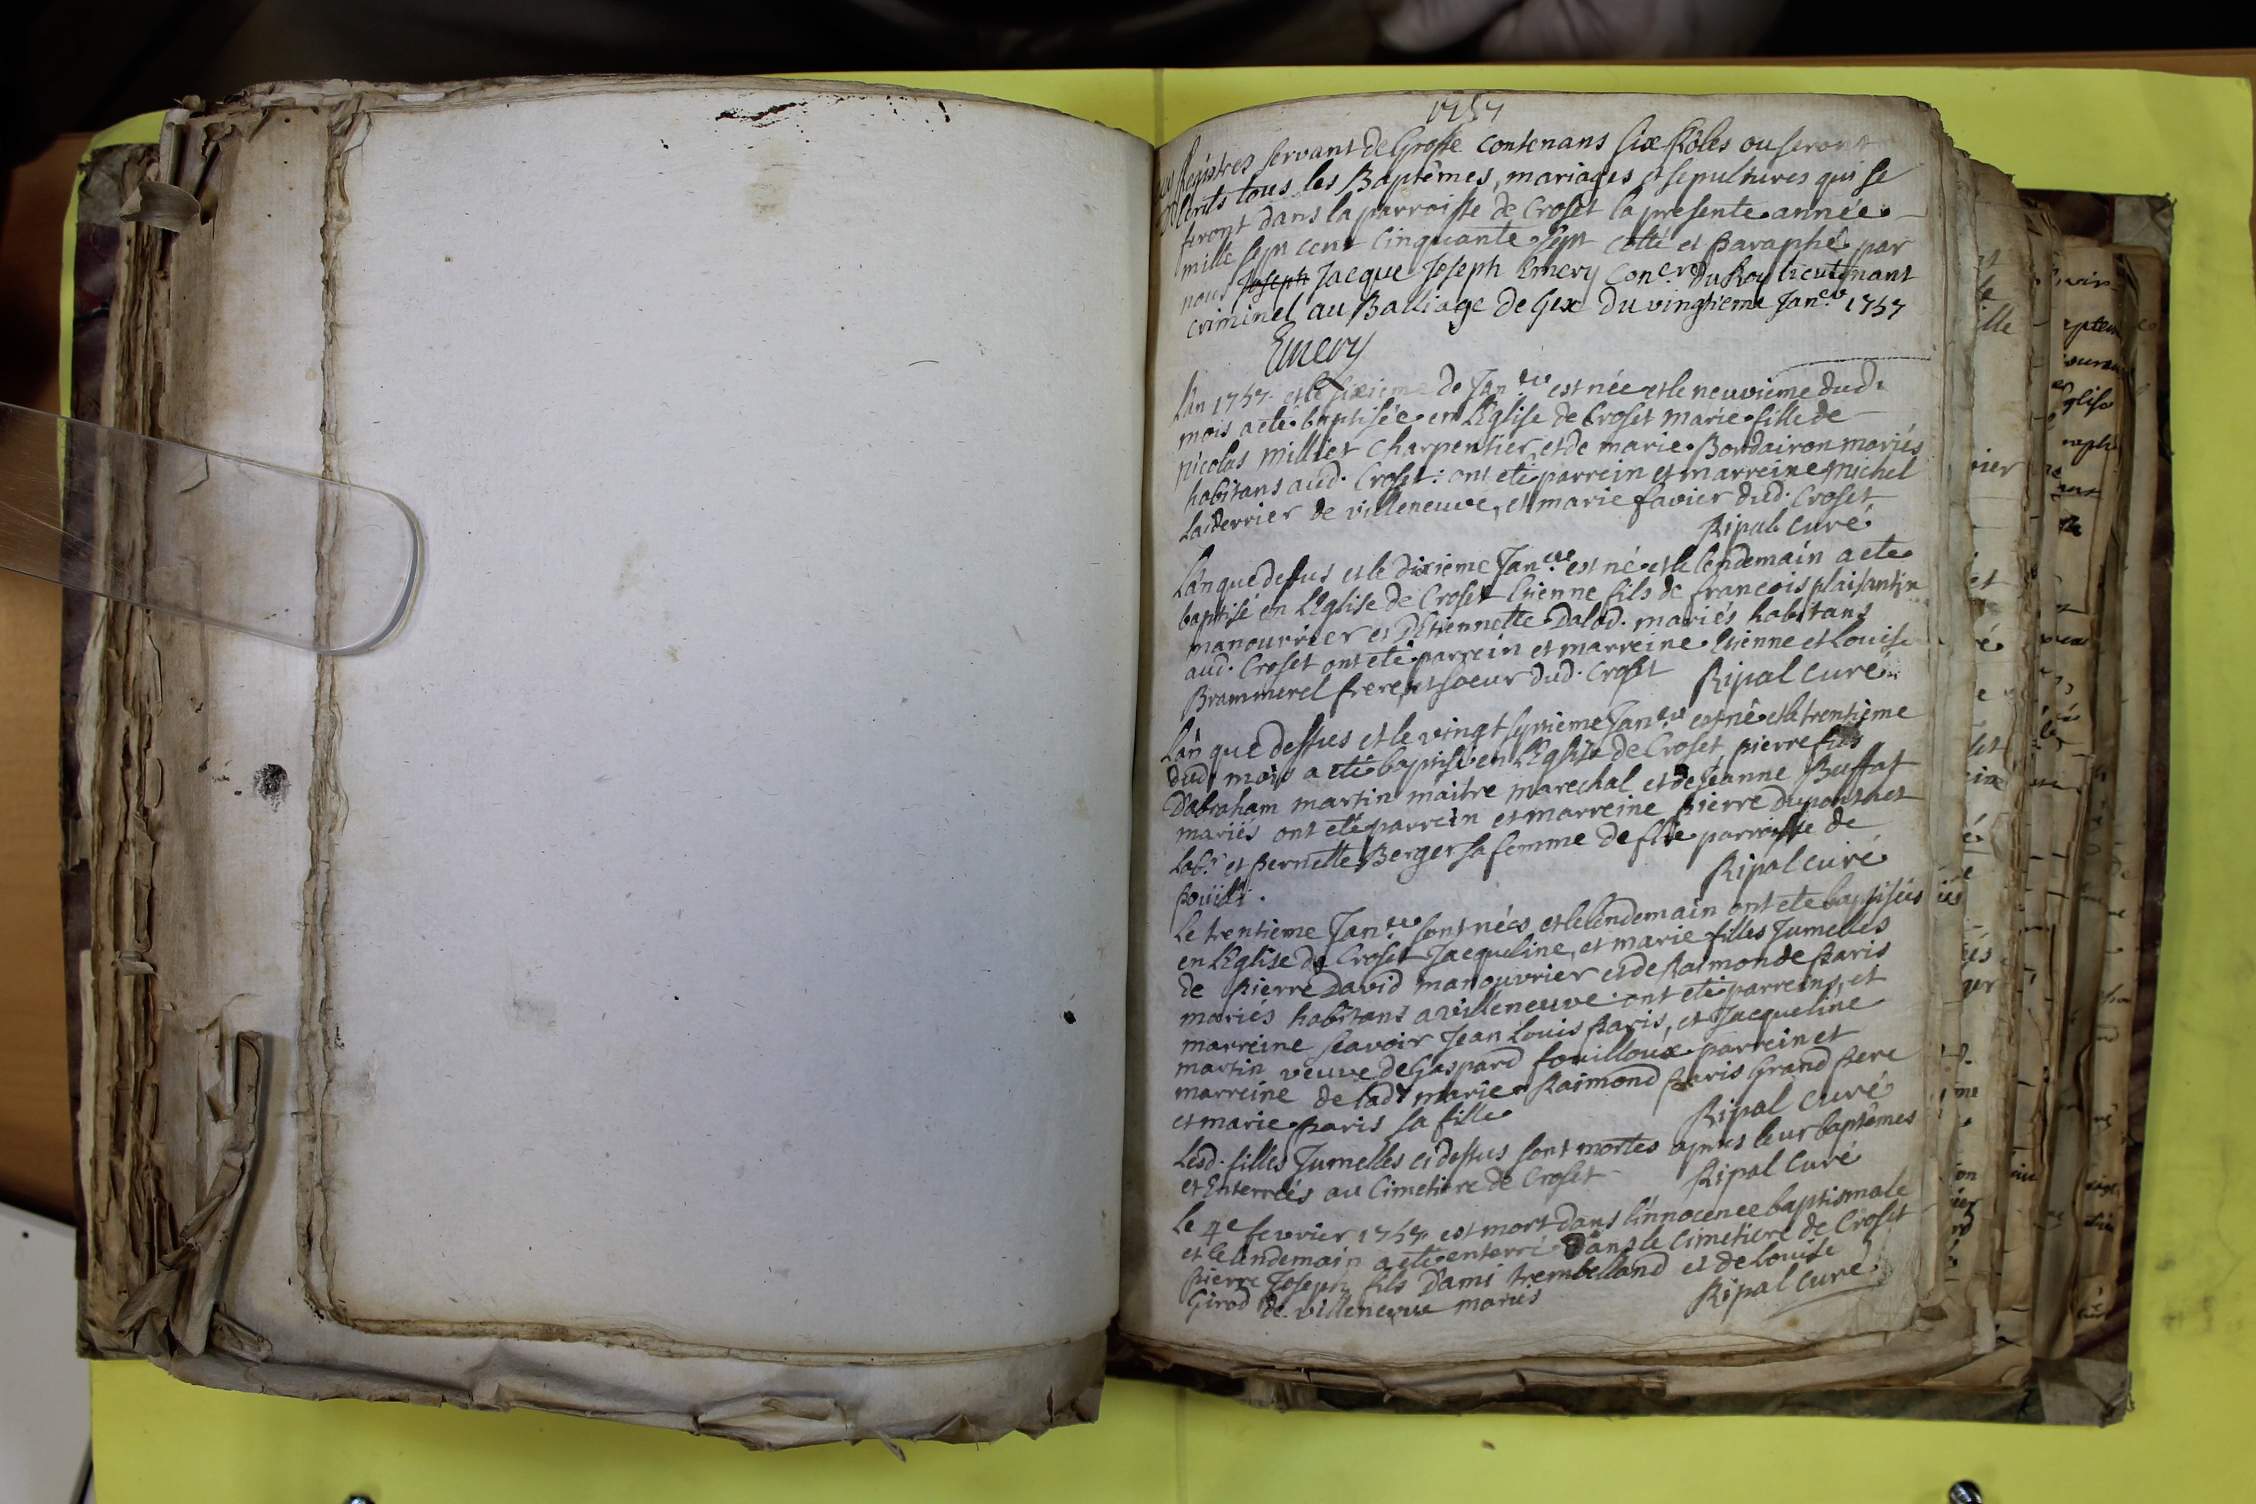 1757
Régistres servant de Grosse contenans six Rôles ou seront
écrits tous les Baptêmes, mariages et sepultures qui se
feront dans la parroisse de Croset la presente année
mille sept cent cinquante sept cotté et paraphé par
nous Joseph Jacque Joseph Emery Con.er du Roy lieutenant
criminel au Balliage de Gex du vingtieme Jan.er 1757
Emery
L'an 1757 et le sixieme de Jan.er est née et le neuvieme dud.
mois a eté baptisée en l'Eglise de Croset marie fille de
nicolas milliet Charpentier et de marie Bordairon mariés
habitans aud. Croset: ont eté parrein et marreine michel
Laiderrier de villeneuve, et marie favier dud. Croset
Ripal curé
L'an que dessus et le dixieme Jan.er est né et le lendemain a eté
baptisé en l'Eglise de Croset Etienne fils de francois plaisantin
manouvrier et d'Etiennette Dalod. mariés habitans
aud. Croset ont eté parrein et marreine Etienne et Louise
Brammerel frere et soeur dud. Croset Ripal curé
L'an que dessus et le vingt septieme Jan.er est né et le trentieme
dud. mois a eté baptisé en l'Eglise de Croset pierre fils
D'abraham martin maitre marechal et de Jeanne Buffat
mariés ont eté parrein et marreine pierre Dupontet
Lab.r et Pernette Berger sa femme de flie parroisse de
Pouilli.
Ripal curé
Le trentieme Jan.er sont nées et le lendemain ont eté baptisées
en l'Eglise de Croset Jacqueline, et marie filles Jumelles
de Pierre David manouvrier et de Raimonde Paris
mariés habitans a villeneuve ont eté parreins, et
marreine scavoir Jean Louis Paris, et Jacqueline
martin veuve de Gaspard fouilloux parrein et
marreine de lad. marie Raimond Paris Grand Pere
et marie Paris sa fille
Ripal curé
Lesd. filles Jumelles ci dessus sont mortes aprés leur baptêmes
et Enterreés au Cimetiere de Croset Ripal Curé
Le 4e fevrier 1757 est mort dans l'innocence baptismale
et le lendemain a eté enterré dans le cimetiere de Croset
pierre Joseph fils D'ami trembelland et de louise
Girod de villeneuve mariés Ripal Curé